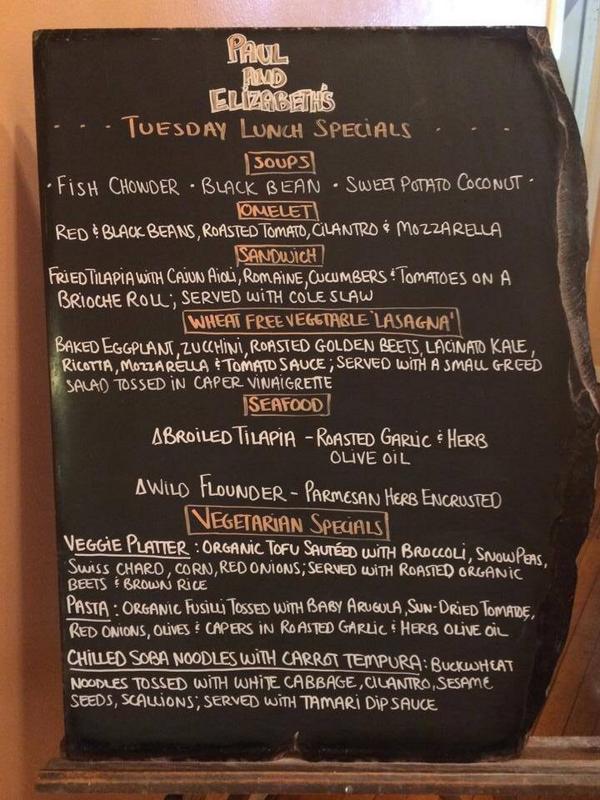 PAUL
AND
ELIZABETH'S
- - - TUESDAY LUNCH SPECIALS - - -
SOUPS
· FISH CHOWDER · BLACK BEAN · SWEET POTATO COCONUT ·
OMELET
RED & BLACK BEANS, ROASTED TOMATO, CILANTRO & MOZZARELLA
SANDWICH
FRIED TILAPIA WITH CAJUN AIOLI, ROMAINE, CUCUMBERS & TOMATOES ON A
BRIOCHE ROLL; SERVED WITH COLE SLAW
WHEAT FREE VEGETABLE 'LASAGNA'
BAKED EGGPLANT, ZUCCHINI, ROASTED GOLDEN BEETS, LACINATO KALE,
RICOTTA, MOZZARELLA & TOMATO SAUCE; SERVED WITH A SMALL GREED
SALAD TOSSED IN CAPER VINAIGRETTE
SEAFOOD
Δ BROILED TILAPIA - ROASTED GARLIC & HERB
OLIVE OIL
Δ WILD FLOUNDER - PARMESAN HERB ENCRUSTED
VEGETARIAN SPECIALS
VEGGIE PLATTER : ORGANIC TOFU SAUTÉED WITH BROCCOLI, SNOW PEAS,
SWISS CHARD, CORN, RED ONIONS; SERVED WITH ROASTED ORGANIC
BEETS & BROWN RICE
PASTA : ORGANIC FUSILI TOSSED WITH BABY ARUGULA, SUN-DRIED TOMATOE,
RED ONIONS, OLIVES & CAPERS IN ROASTED GARLIC & HERB OLIVE OIL
CHILLED SOBA NOODLES WITH CARROT TEMPURA: BUCKWHEAT
NOODLES TOSSED WITH WHITE CABBAGE, CILANTRO, SESAME
SEEDS, SCALLIONS; SERVED WITH TAMARI DIP SAUCE